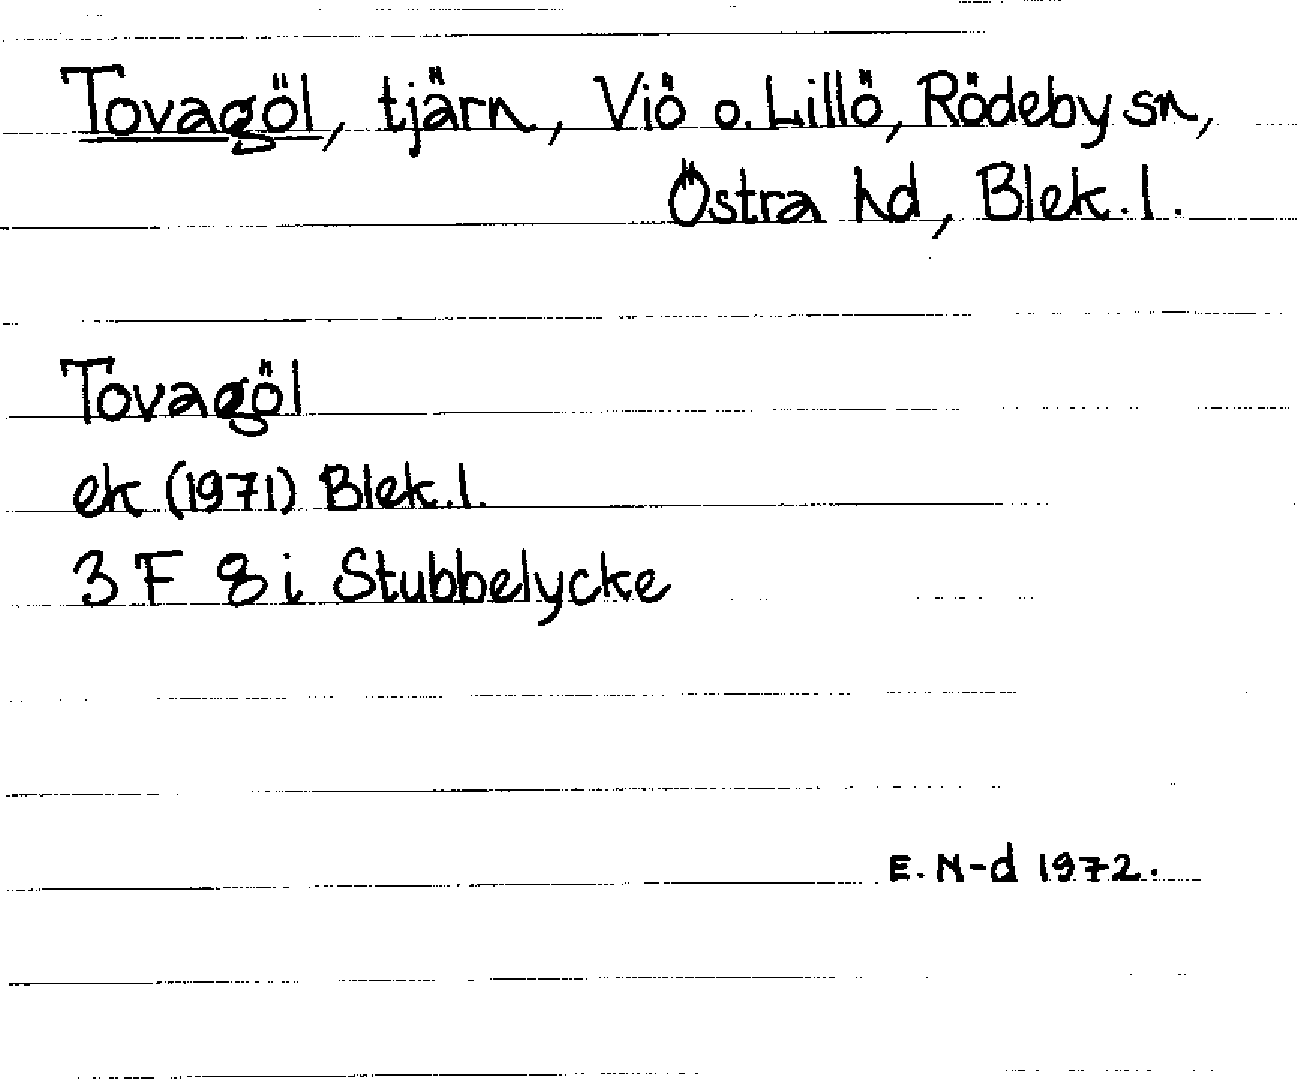 Tovagöl, tjärn, Viö o. Lillö, Rödeby sn,
Östra hd, Blek. l.
Tovagöl
ek (1971) Blek. l.
3 F 8 i Stubbelycke
E. N-d 1972.